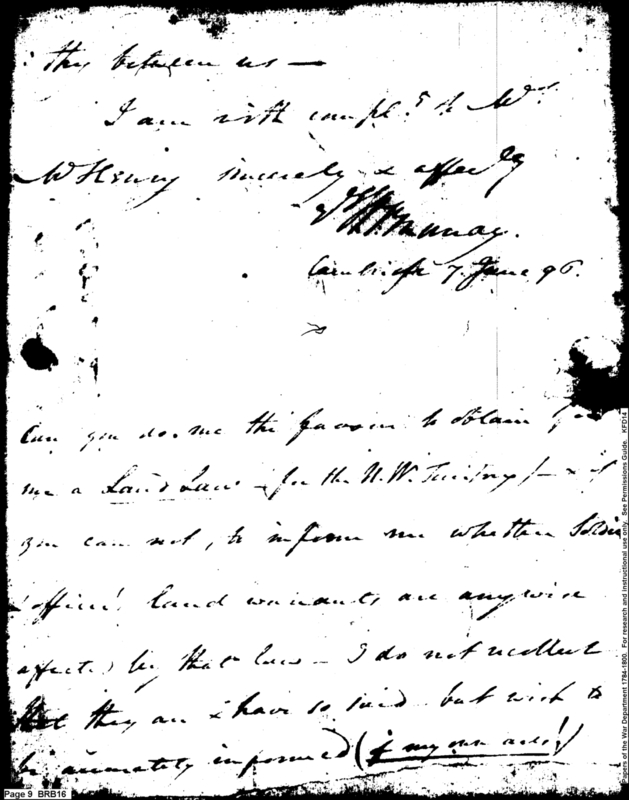 they between us —
I am with compl.ts to Mrs.
McHenry sincerely & affecly
Murray.
Cambridge 7. June 96.
Can you do me the favour to obtain for
me a Land Law – for the N.W. Territory – & if
you can not, to inform me whether Soldiers
officers land warrants are anywise
affected by that law – I do not recollect
that they are & have so said but wish to
be accurately informed (if my own acts!)
Page 9 BRB16
Papers of the War Department 1784-1800. For research and instructional use only. See Permissions Guide. KFD14